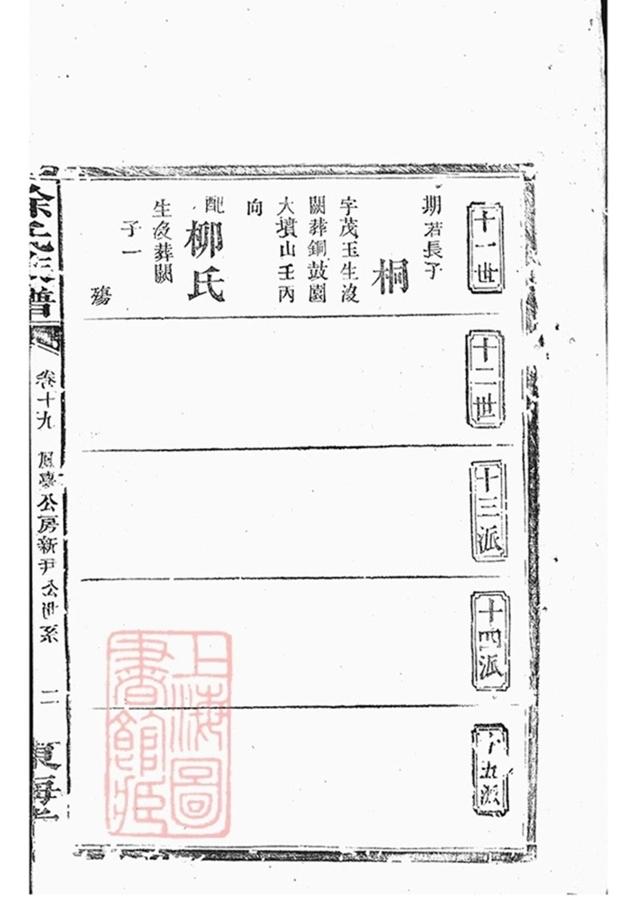 十一世
期若長子
桐
字茂玉生沒
闕葬銅鼓園
大墳山壬丙
向
配
柳氏
生沒葬闕
子一
殤
十二世
十三派
十四派
十五派
徐氏族譜
卷十九
公房新
二
東海堂
上海圖
書館藏